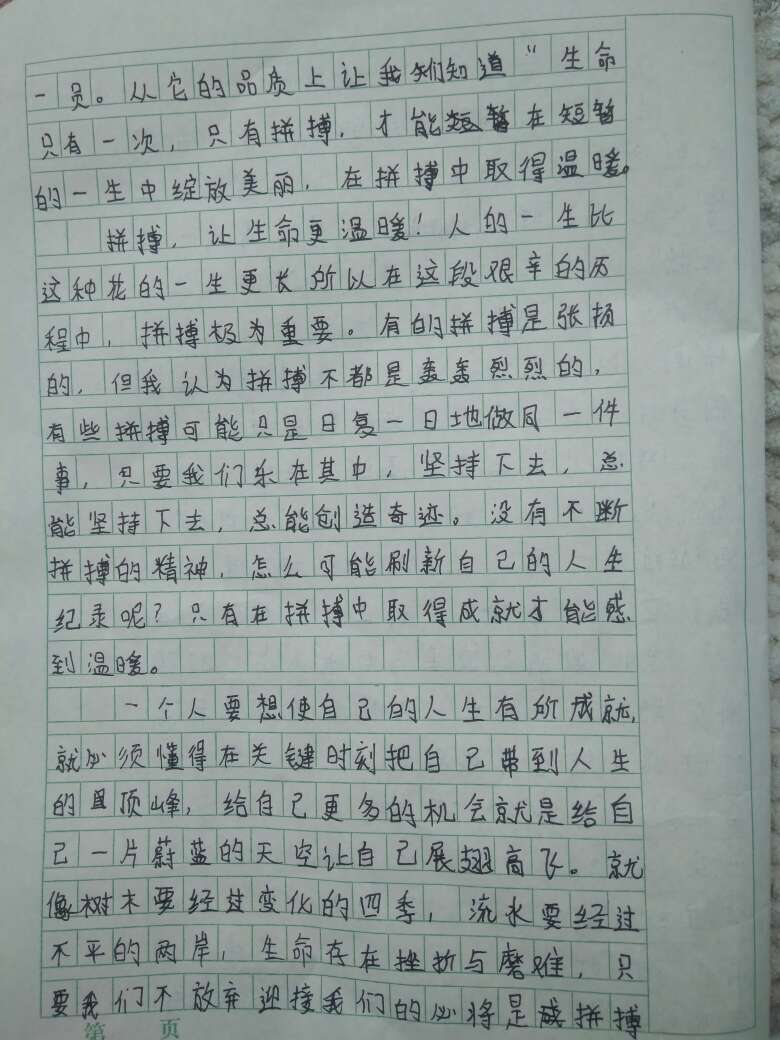 一员。从它的品质上让我们知道“生命
只有一次，只有拼搏，才能短暂在短暂
的一生中绽放美丽，在拼搏中取得温暖。
拼搏，让生命更温暖！人的一生比
这种花的一生更长所以在这段艰辛的历
程中，拼搏极为重要。有的拼搏是张扬
的，但我认为拼搏不都是轰轰烈烈的，
有些拼搏可能只是日复一日地做同一件
事，只要我们乐在其中，坚持下去，总
能坚持下去，总能创造奇迹。没有不断
拼搏的精神，怎么可能刷新自己的人生
纪录呢？只有在拼搏中取得成就才能感
到温暖。
一个人要想使自己的人生有所成就，
就必须懂得在关键时刻把自己带到人生
的顶峰，给自己更多的机会就是给自
己一片蔚蓝的天空让自己展翅高飞。就
像树木要经过变化的四季，流水要经过
不平的两岸，生命存在挫折与磨难，只
要我们不放弃迎接我们的必将是成拼搏
第 页